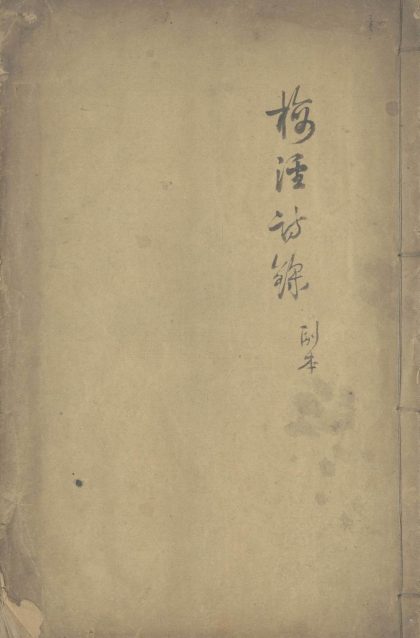 梅涇詩錄
副本